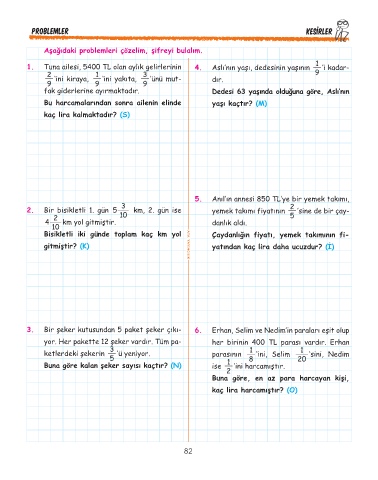 PROBLEMLER
KESİRLER
Aşağıdaki problemleri çözelim, şifreyi bulalım.
1. Tuna ailesi, 5400 TL olan aylık gelirlerinin
2/9 'ini kiraya, 1/9 'ini yakıta, 3/9 'ünü mut-
fak giderlerine ayırmaktadır.
Bu harcamalarından sonra ailenin elinde
kaç lira kalmaktadır? (S)
2. Bir bisikletli 1. gün 5 3/10 km, 2. gün ise
4 2/10 km yol gitmiştir.
Bisikletli iki günde toplam kaç km yol
gitmiştir? (K)
3. Bir şeker kutusundan 5 paket şeker çıkı-
yor. Her pakette 12 şeker vardır. Tüm pa-
ketlerdeki şekerin 3/5 'ü yeniyor.
Buna göre kalan şeker sayısı kaçtır? (N)
4. Aslı'nın yaşı, dedesinin yaşının 1/9 'i kadar-
dır.
Dedesi 63 yaşında olduğuna göre, Aslı'nın
yaşı kaçtır? (M)
5. Anıl'ın annesi 850 TL'ye bir yemek takımı,
yemek takımı fiyatının 2/5 'sine de bir çay-
danlık aldı.
Çaydanlığın fiyatı, yemek takımının fi-
yatından kaç lira daha ucuzdur? (İ)
6. Erhan, Selim ve Nedim'in paraları eşit olup
her birinin 400 TL parası vardır. Erhan
parasının 1/8 'ini, Selim 1/20 'sini, Nedim
ise 1/2 'ini harcamıştır.
Buna göre, en az para harcayan kişi,
kaç lira harcamıştır? (O)
82